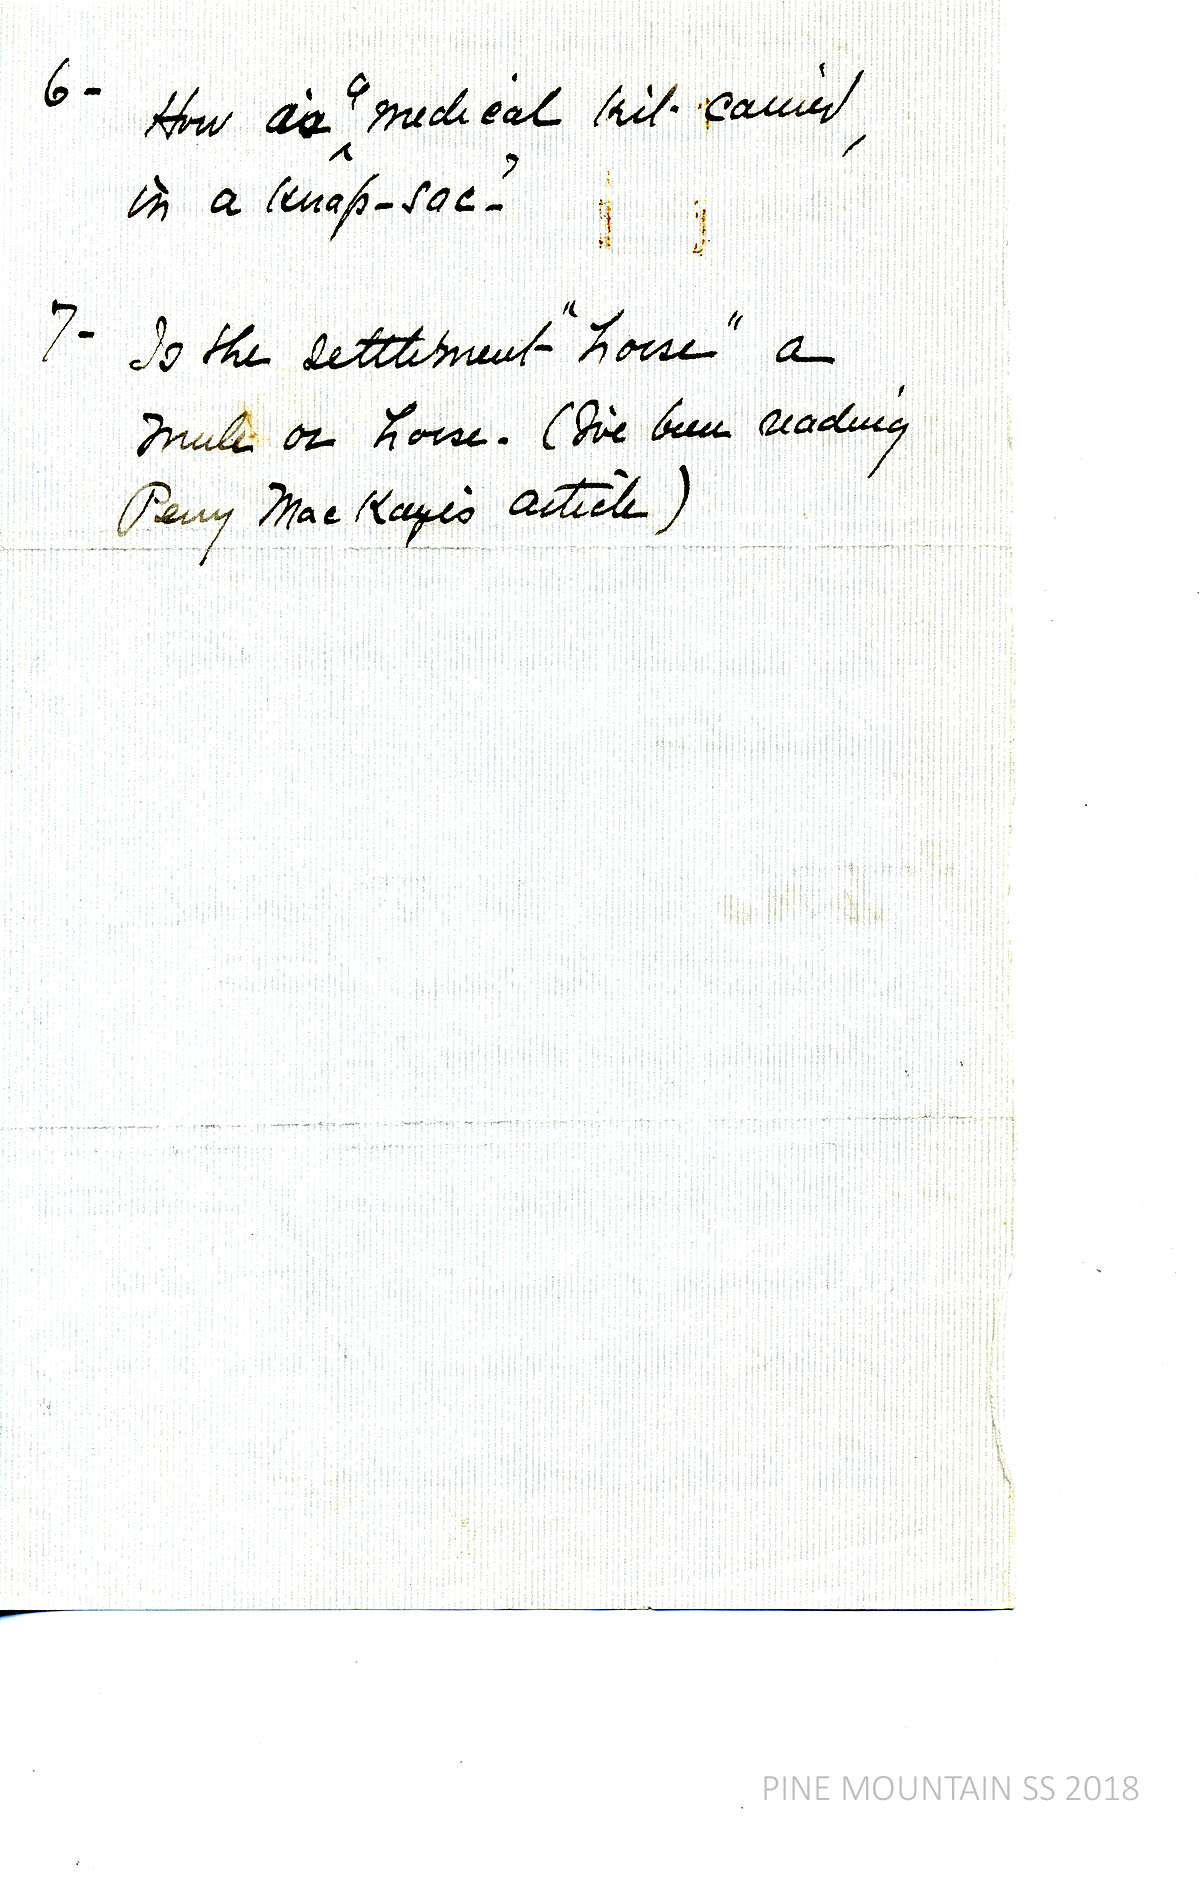 6- How is a medical kit carried,
in a knap-sac-?
7- Is the settlement "horse" a
mule or horse. (I've been reading
Perry MacKaye's article)
PINE MOUNTAIN SS 2018